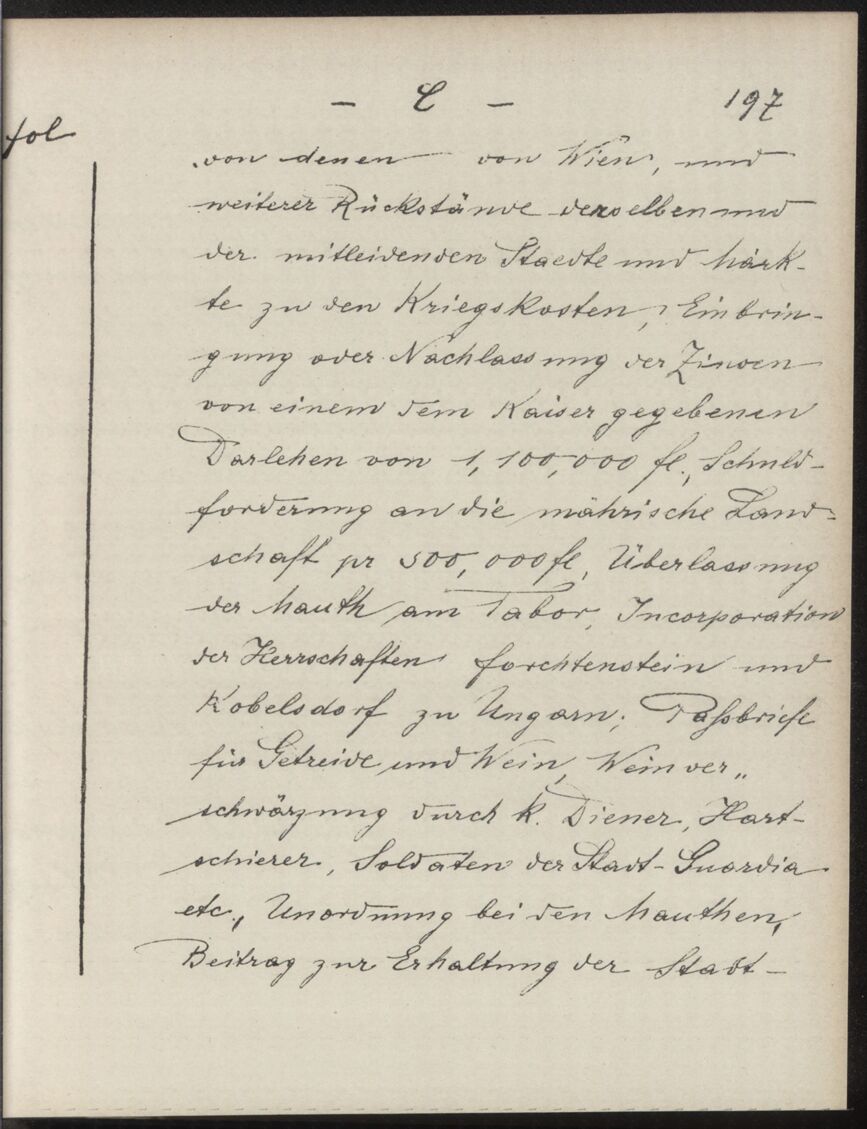 - C -
197
fol
von denen von Wien, und
weiterer Rückstände derselben und
der mitleidenden Staedte und Märk-
te zu den Kriegskosten, Einbrin-
gung oder Nachlassung der Zinsen
von einem dem Kaiser gegebenen
Darlehen von 1,100,000 fl., Schuld-
forderung an die mährische Land-
schaft pr 500,000 fl, Überlassung
der Mauth am Tabor, Incorporation
der Herrschaften Forchtenstein und
Kobelsdorf zu Ungarn; Paßbriefe
für Getreide und Wein, Weinver„
schwärzung durch k. Diener, Hart-
schierer, Soldaten der Stadt-Guardia
etc., Unordnung bei den Mauthen,
Beitrag zur Erhaltung der Stadt-